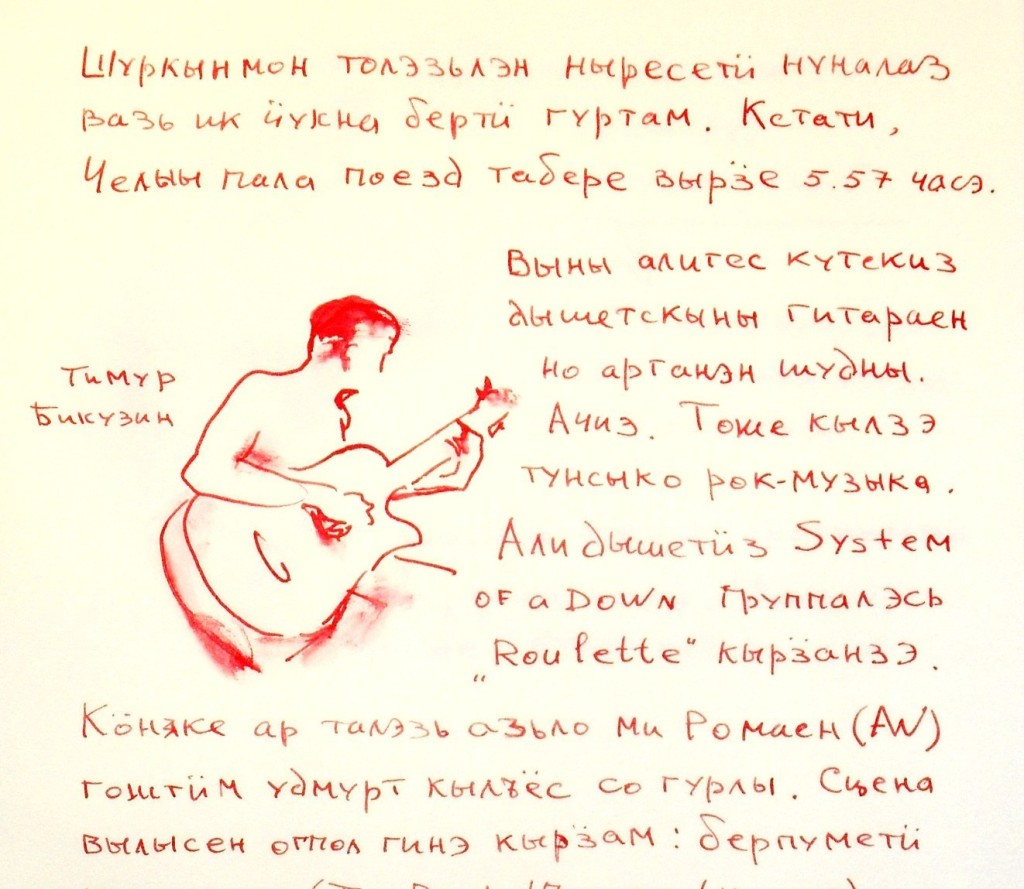 Шуркынмон толэзьлэн нырысетӥ нуналаз
вазь ик ӵукна бертӥ гуртам. Кстати,
Челны пала поезд табере вырӟе 5.57 часэ.
Выны алигес кутскиз
дышетскыны гитараен
но арганэн шудны.
Ачиз. Тоже кылзэ
тунсыко рок-музыка.
Али дышетӥз System
OF a DOWN группалэсь
„Roulette“ кырӟанзэ.
Тимур
Бикузин
Кӧняке ар талэсь азьло ми Ромаен (AW)
гожтӥм удмурт кылъёс со гурлы. Сцена
вылысен огпол гинэ кырӟам: берпуметӥ